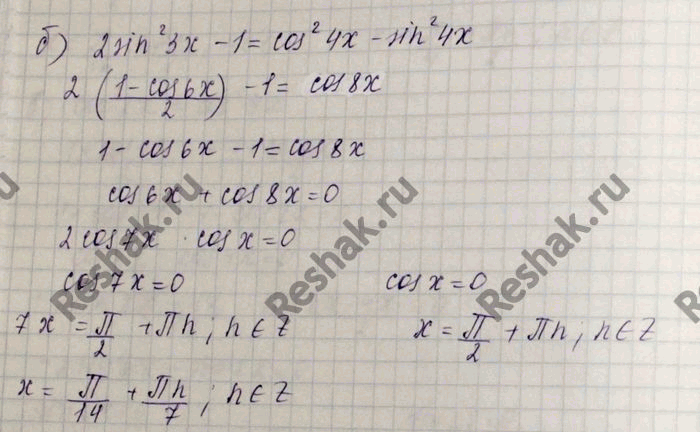 б) 2sin²3x - 1 = cos²4x - sin²4x
2 (1 - cos6x / 2) - 1 = cos8x
1 - cos6x - 1 = cos8x
cos6x + cos8x = 0
2cos7x · cosx = 0
cos7x = 0 cosx = 0
7x = П/2 + Пn; n ∈ Z x = П/2 + Пn; n ∈ Z
x = П/14 + Пn/7; n ∈ Z
Reshak.ru
Reshak.ru
Reshak.ru